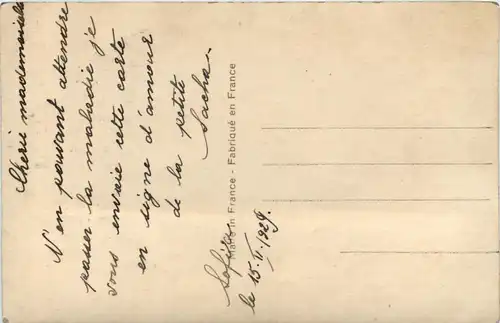 Cherie mademoiselle
N'en pouvant attendre
passer la maladie je
vous envoie cette carte
en signe d'amour
de la petite
Sacha.
Made in France - Fabriqué en France
le 15.II.1929.